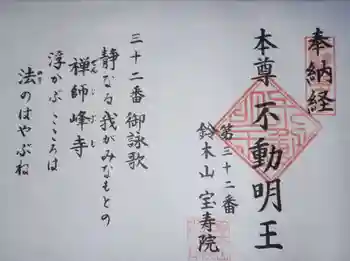 奉納経
本尊 不動明王
第三十二番
鈴木山 宝寿院
三十二番御詠歌
静なる我がみなもとの
禅師峰寺
ぜんじぶじ
浮かぶこころは
法のはやぶね
のり